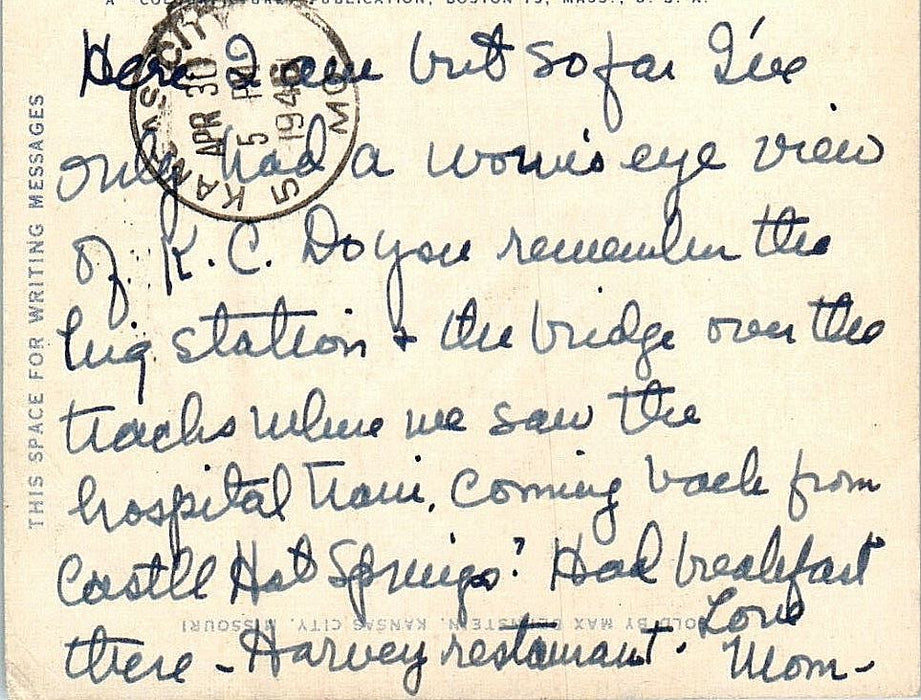 A "COLOURPICTURE" PUBLICATION, BOSTON 15, MASS., U. S. A.
THIS SPACE FOR WRITING MESSAGES
KANSAS CITY
APR 30
5 PM
1946
5
MO.
Here I am but so far I've
only had a worm's eye view
of K.C. Do you remember the
big station + the bridge over the
tracks where we saw the
hospital train, coming back from
Castle Hot Springs? Had breakfast
there - Harvey restaurant.
Love
Mom -
SOLD BY MAX BERNSTEIN, KANSAS CITY, MISSOURI